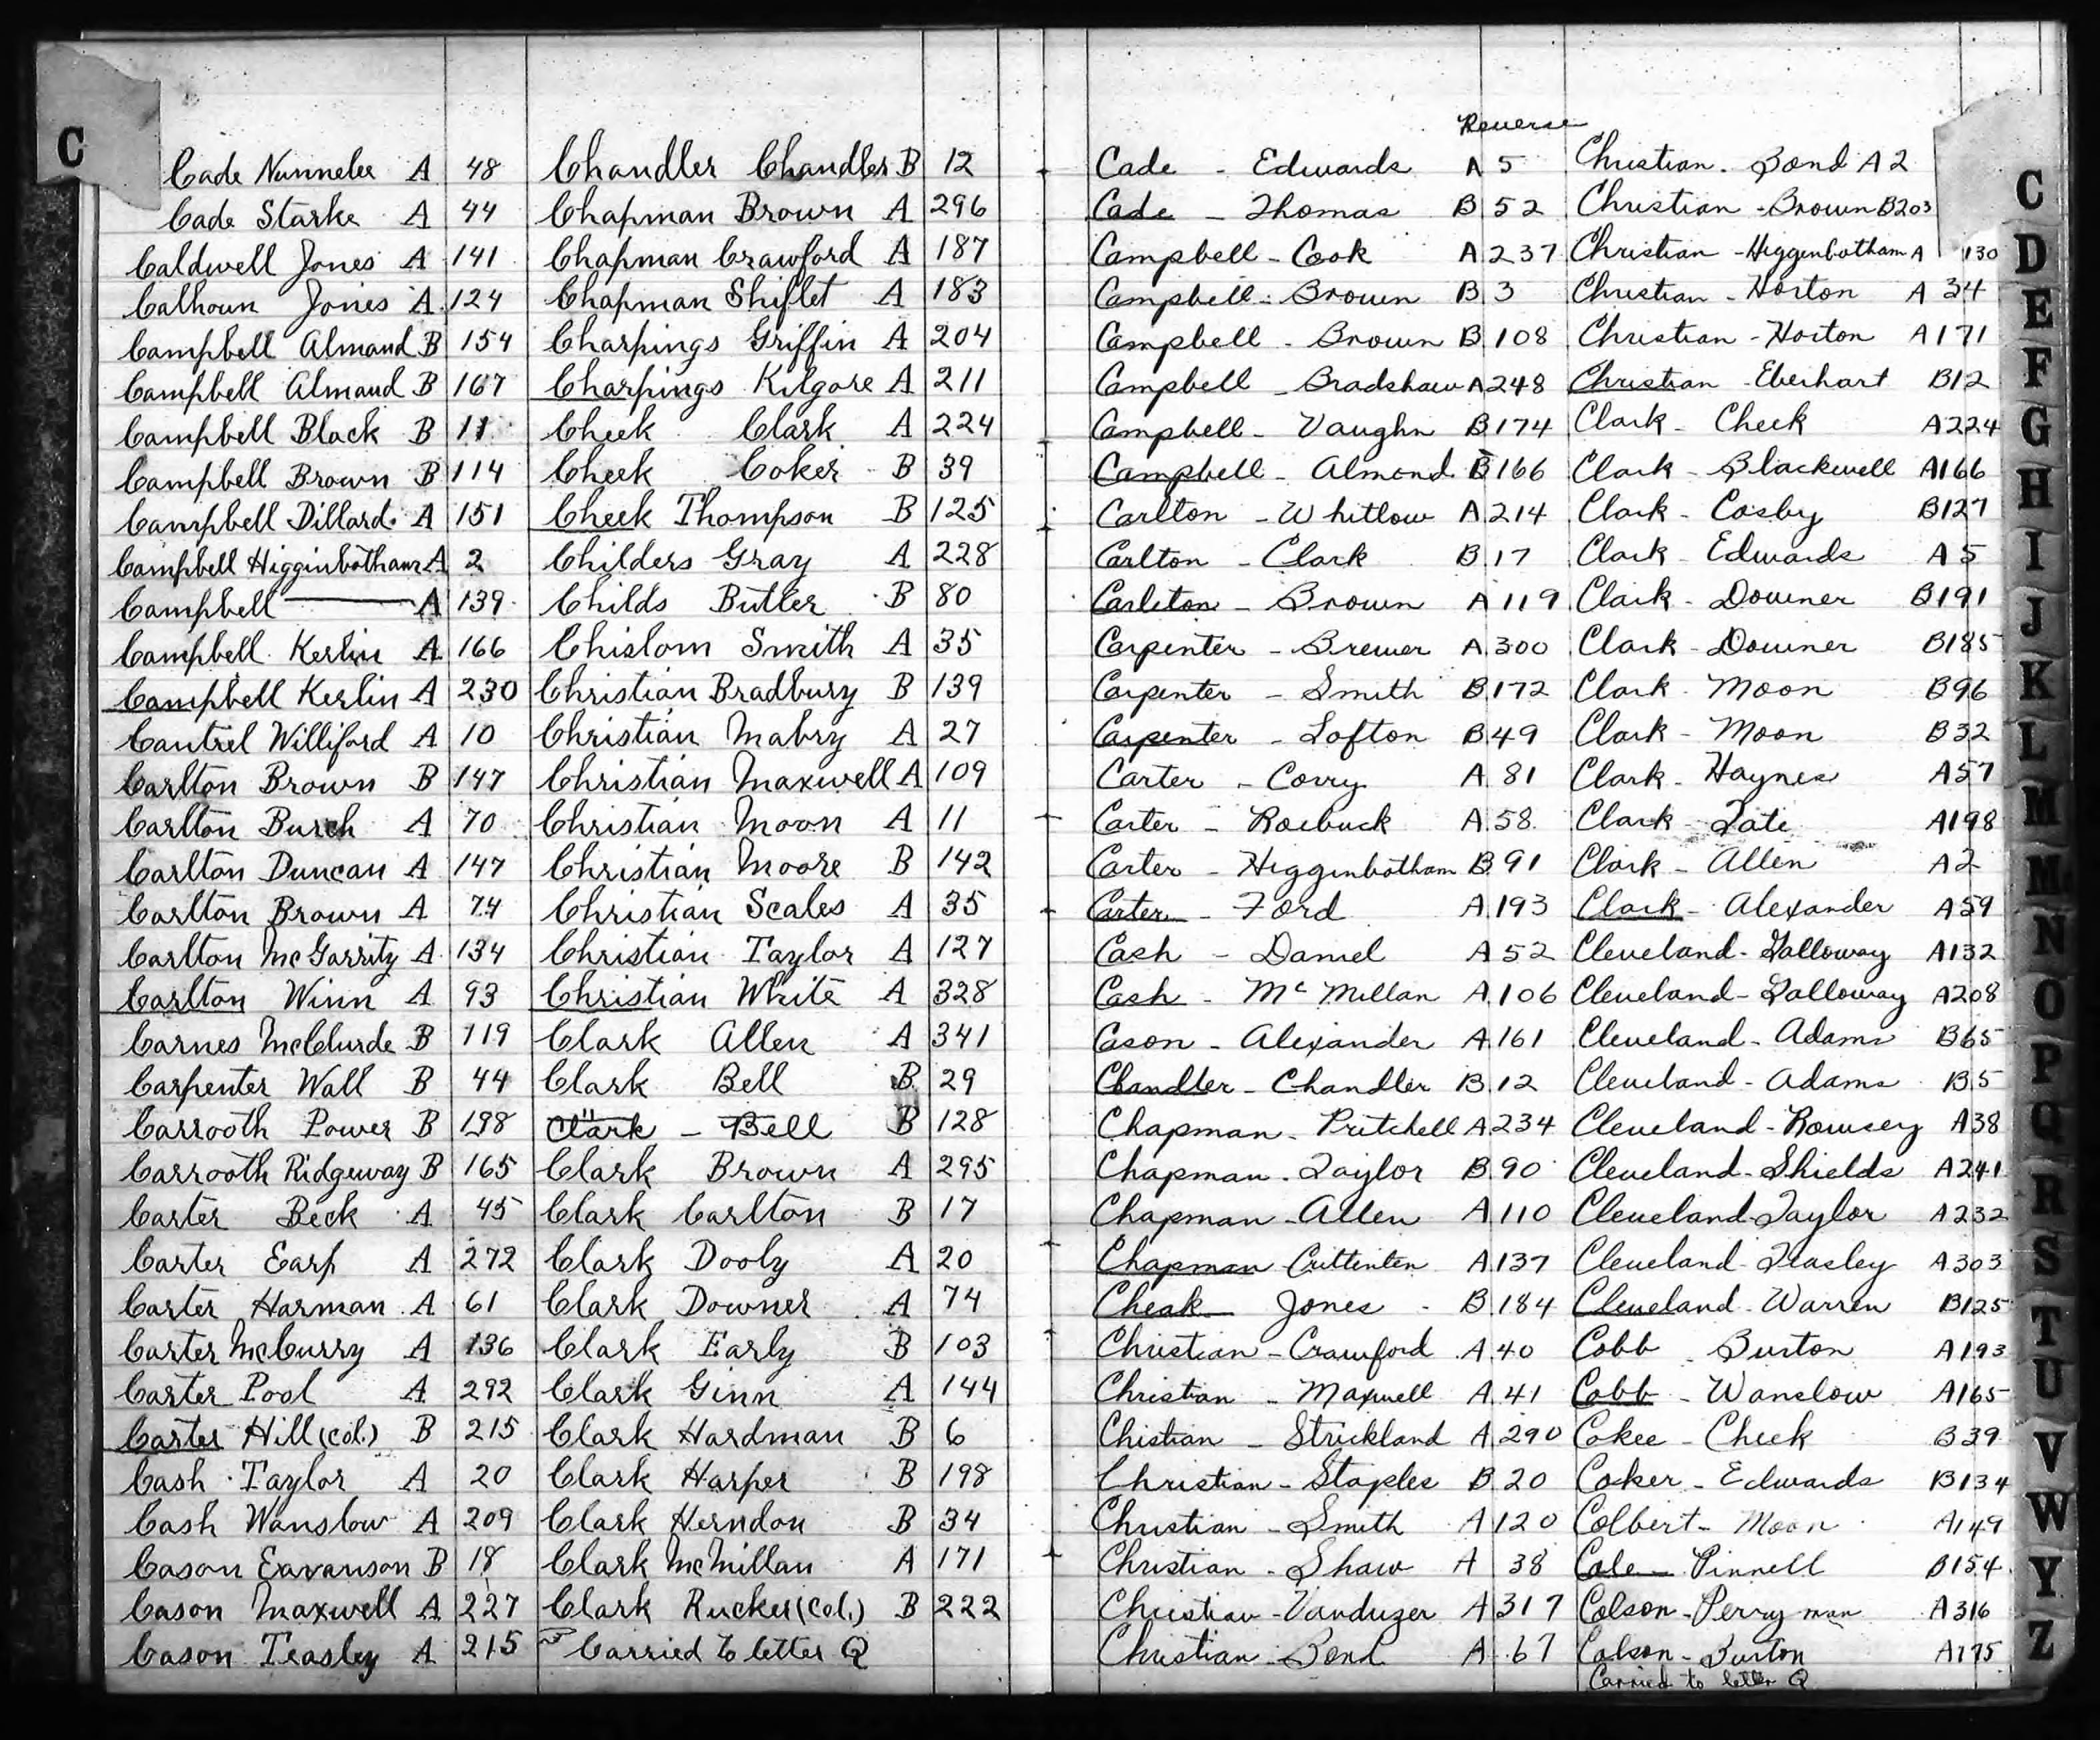 C
Cade Nunnelee A 48
Cade Starke A 44
Caldwell Jones A 141
Calhoun Jones A 124
Campbell Almand B 154
Campbell Almand B 167
Campbell Black B 11
Campbell Brown B 114
Campbell Dillard A 151
Campbell Higginbotham A 2
Campbell ——— A 139
Campbell Kerlin A 166
Campbell Kerlin A 230
Cantrel Williford A 10
Carlton Brown B 147
Carlton Burch A 70
Carlton Duncan A 147
Carlton Brown A 74
Carlton McGarrity A 134
Carlton Winn A 93
Carnes McClurde B 119
Carpenter Wall B 44
Carrooth Power B 198
Carrooth Ridgeway B 165
Carter Beck A 45
Carter Earp A 272
Carter Harman A 61
Carter McCurry A 136
Carter Pool A 292
Carter Hill (col.) B 215
Cash Taylor A 20
Cash Wanslow A 209
Cason Eavanson B 18
Cason Maxwell A 227
Cason Teasley A 215
Chandler Chandler B 12
Chapman Brown A 296
Chapman Crawford A 187
Chapman Shiflet A 183
Charpings Griffin A 204
Charpings Kilgore A 211
Cheek Clark A 224
Cheek Coker B 39
Cheek Thompson B 125
Childers Gray A 228
Childs Butler B 80
Chislom Smith A 35
Christian Bradbury B 139
Christian Mabry A 27
Christian Maxwell A 109
Christian Moon A 11
Christian Moore B 142
Christian Scales A 35
Christian Taylor A 127
Christian White A 328
Clark Allen A 341
Clark Bell B 29
Clark - Bell B 128
Clark Brown A 295
Clark Carlton B 17
Clark Dooly A 20
Clark Downer A 74
Clark Early B 103
Clark Ginn A 144
Clark Hardman B 6
Clark Harper B 198
Clark Herndon B 34
Clark McMillan A 171
Clark Rucker (col.) B 222
Carried to letter Q
Reverse
Cade - Edwards A 5
Cade - Thomas B 52
Campbell - Cook A 237
Campbell - Brown B 3
Campbell - Brown B 108
Campbell - Bradshaw A 248
Campbell - Vaughn B 174
Campbell - Almond B 166
Carlton - Whitlow A 214
Carlton - Clark B 17
Carleton - Brown A 119
Carpenter - Brewer A 300
Carpenter - Smith B 172
Carpenter - Lofton B 49
Carter - Corry A 81
Carter - Roebuck A 58
Carter - Higgenbotham B 91
Carter - Ford A 193
Cash - Daniel A 52
Cash - McMillan A 106
Cason - Alexander A 161
Chandler - Chandler B 12
Chapman - Pritchell A 234
Chapman - Taylor B 90
Chapman - Allen A 110
Chapman - Crittenten A 137
Cheak - Jones - B 184
Christian - Crawford A 40
Christian - Maxwell A 41
Chistian - Strickland A 290
Christian - Staples B 20
Christian - Smith A 120
Christian - Shaw A 38
Christian - Vanduzer A 317
Christian - Bond A 67
Christian - Bond A 2
Christian - Brown B 203
Christian - Higgenbotham A 130
Christian - Horton A 34
Christian - Horton A 171
Christian - Eberhart B 12
Clark - Cheek A 224
Clark - Blackwell A 166
Clark - Cosby B 127
Clark - Edwards A 5
Clark - Downer B 191
Clark - Downer B 185
Clark - Moon B 96
Clark - Moon B 32
Clark - Haynes A 57
Clark - Tate A 198
Clark - Allen A 2
Clark - Alexander A 59
Cleveland - Galloway A 132
Cleveland - Galloway A 208
Cleveland - Adams B 65
Cleveland - Adams B 5
Cleveland - Rowsey A 38
Cleveland - Shields A 241
Cleveland - Taylor A 232
Cleveland - Teasley A 303
Cleveland - Warren B 125
Cobb - Burton A 193
Cobb - Wanslow A 165
Cokee - Cheek B 39
Coker - Edwards B 134
Colbert - Moon A 149
Cole - Pinnell B 154
Colson - Perryman A 316
Colson - Burton A 175
Carried to letter Q
C
D
E
F
G
H
I
J
K
L
M
M
N
O
P
Q
R
S
T
U
V
W
Y
Z